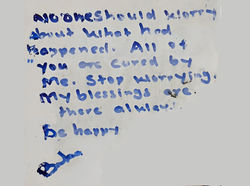 No one should worry
about what had
happened. All of
you are cured by
Me. Stop worrying.
My blessings are
there always.
Be happy
Baba